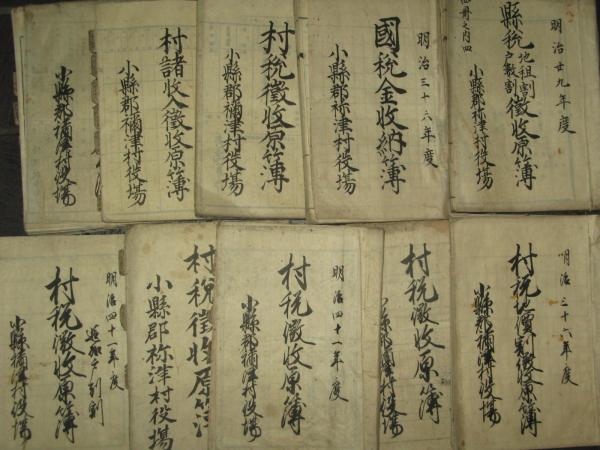 明治廿九年度
縣税地租割戸数割徴收原簿
四冊之内四
小縣郡祢津村役場
明治三十六年度
國税金收納簿
小縣郡祢津村役場
村税徴收原簿
小縣郡禰津村役場
村諸收入徴收原簿
小縣郡禰津村役場
小縣郡禰津村役場
明治三十六年度
村税地價割徴收原簿
小縣郡禰津村役場
村税徴收原簿
小縣郡禰津村役場
明治四十一年度
村税徴收原簿
小縣郡禰津村役場
村税徴收原簿
小縣郡祢津村役場
明治四十一年度
追加戸別割
村税徴收原簿
小縣郡禰津村役場